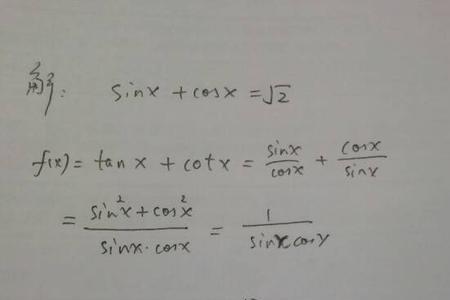 解: sinx + cosx = √2
f(x) = tanx + cotx = sinx/cosx + cosx/sinx
= sin²x + cos²x/sinx·cosx = 1/sinxcosx